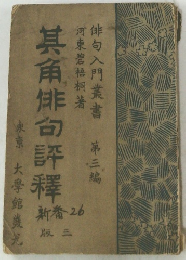 俳句入門叢書
第三編
河東碧梧桐著
其角俳句評釋
東京 大學館發兌
26